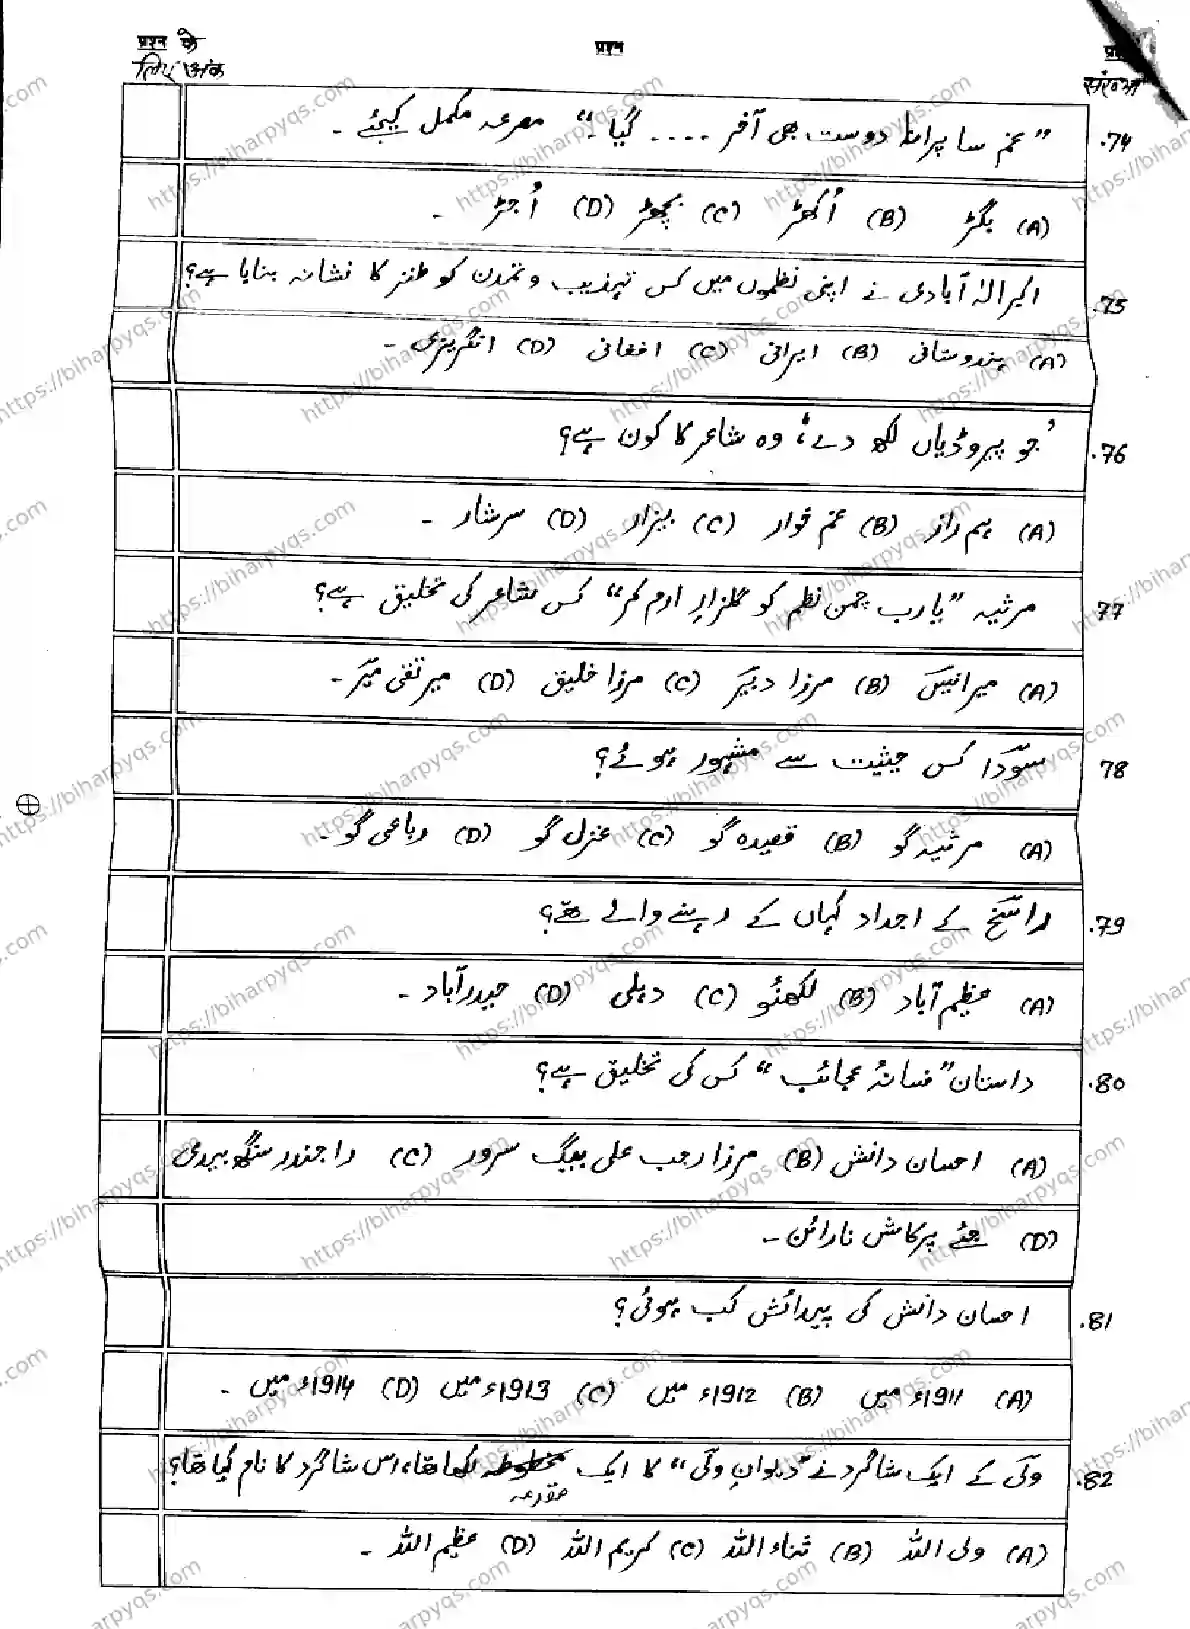 प्रश्न के
लिए अंक
प्रश्न
संख्या
74. "غم سا پرانا دوست بھی آخر .... گیا۔" مصرعہ مکمل کیجئے ۔
(A) بگڑ (B) اُکھڑ (C) بچھڑ (D) اُجڑ ۔
75. اکبر الہٰ آبادی نے اپنی نظموں میں کس تہذیب و تمدن کو طنز کا نشانہ بنایا ہے؟
(A) ہندوستانی (B) ایرانی (C) افغانی (D) انگریزی ۔
76. 'جو پیروڈیاں لکھ دے'، وہ شاعر کا کون ہے؟
(A) ہم راز (B) غم خوار (C) بیزار (D) سرشار ۔
77 مرثیہ "یارب چمن نظم کو گلزارِ ارم کر" کس شاعر کی تخلیق ہے؟
(A) میر انیسؔ (B) مرزا دبیرؔ (C) مرزا خلیق (D) میر تقی میرؔ ۔
78 سوداؔ کس حیثیت سے مشہور ہوئے؟
(A) مرثیہ گو (B) قصیدہ گو (C) غزل گو (D) رباعی گو ۔
79. راسخؔ کے اجداد کہاں کے رہنے والے تھے؟
(A) عظیم آباد (B) لکھنؤ (C) دہلی (D) حیدرآباد ۔
80. داستان "فسانۂ عجائب" کس کی تخلیق ہے؟
(A) احسان دانش (B) مرزا رجب علی بیگ سرور (C) راجندر سنگھ بیدی
(D) جئے پرکاش نارائن ۔
81. احسان دانش کی پیدائش کب ہوئی؟
(A) 1911ء میں (B) 1912ء میں (C) 1913ء میں (D) 1914ء میں ۔
82. ولیؔ کے ایک شاگرد نے "دیوانِ ولیؔ" کا ایک مقدمہ لکھا تھا، اس شاگرد کا نام کیا تھا؟
(A) ولی اللہ (B) ثناء اللہ (C) کریم اللہ (D) عظیم اللہ ۔
https://biharpyqs.com